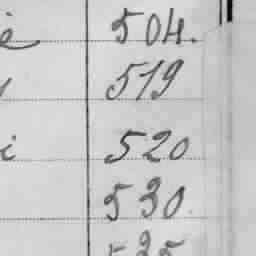 504.
519
i 520
530.
535